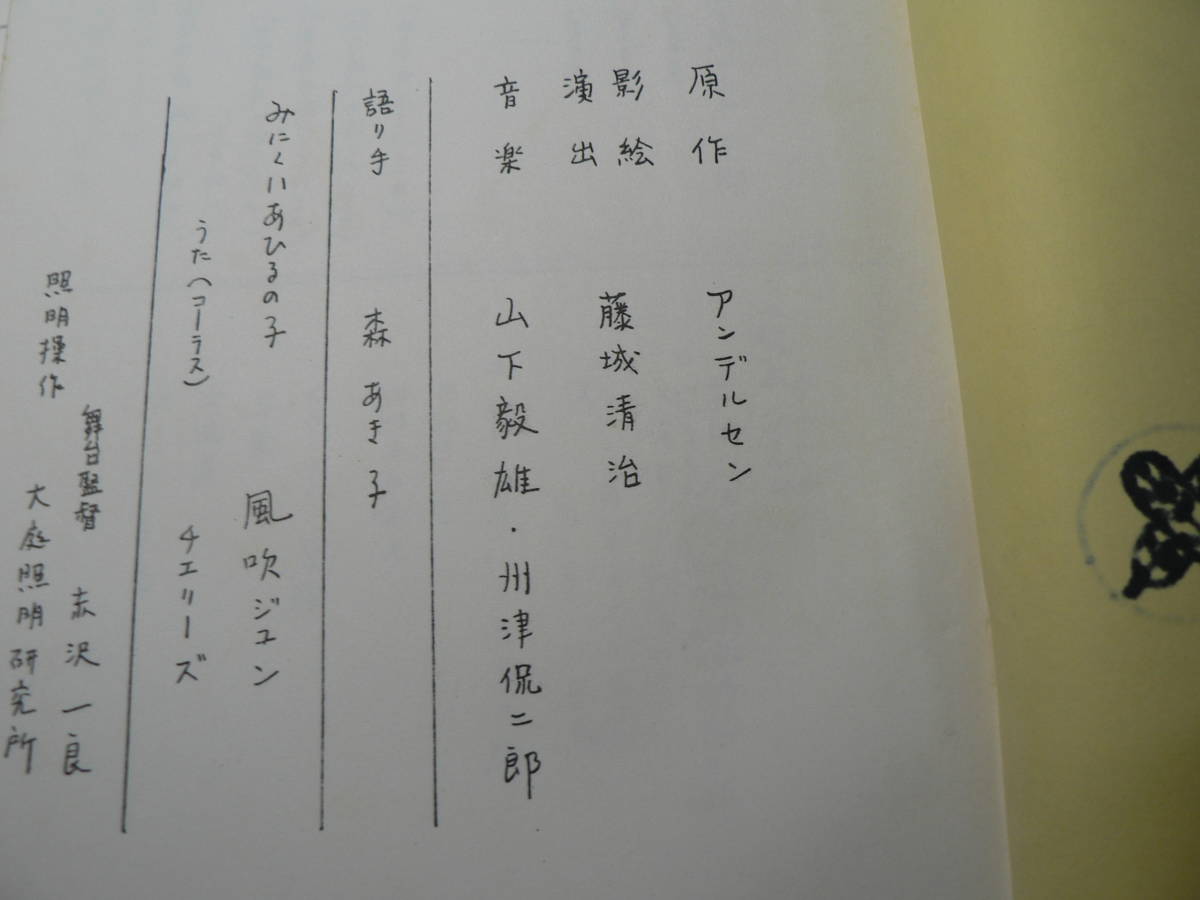 原作 アンデルセン
影絵
演出 藤城清治
音楽 山下毅雄・州津侃二郎
語り手 森あき子
みにくいあひるの子 風吹ジュン
うた(コーラス) チェリーズ
舞台監督 赤沢一良
照明操作 大庭照明研究所